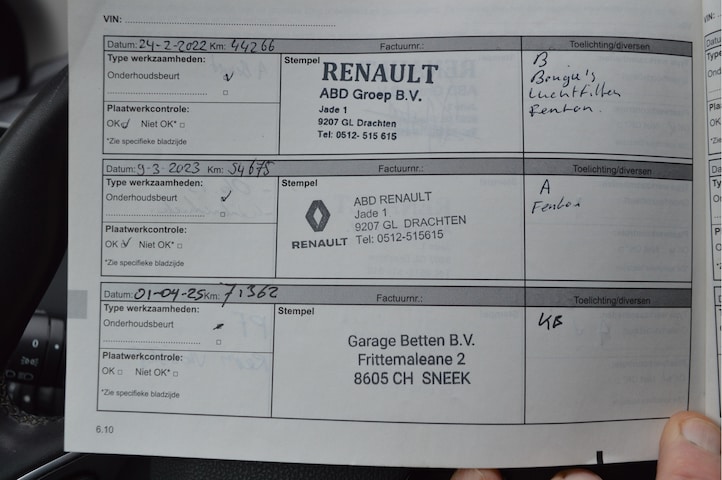 VIN:
Datum: 24-2-2022 Km: 44266 Factuurnr.: Toelichting/diversen
Type werkzaamheden:
Onderhoudsbeurt
Plaatwerkcontrole:
OK Niet OK*
*Zie specifieke bladzijde
Stempel
RENAULT
ABD Groep B.V.
Jade 1
9207 GL Drachten
Tel: 0512- 515 615
B
Bougie's
Luchtfilter
Fenton.
Datum: 9-3-2023 Km: 54675 Factuurnr.: Toelichting/diversen
Type werkzaamheden:
Onderhoudsbeurt
Plaatwerkcontrole:
OK Niet OK*
*Zie specifieke bladzijde
Stempel
RENAULT
ABD RENAULT
Jade 1
9207 GL DRACHTEN
Tel: 0512-515615
A
Fenton
Datum: 01-04-25 Km: 71362 Factuurnr.: Toelichting/diversen
Type werkzaamheden:
Onderhoudsbeurt
Plaatwerkcontrole:
OK Niet OK*
*Zie specifieke bladzijde
Stempel
Garage Betten B.V.
Frittemaleane 2
8605 CH SNEEK
KB
6.10